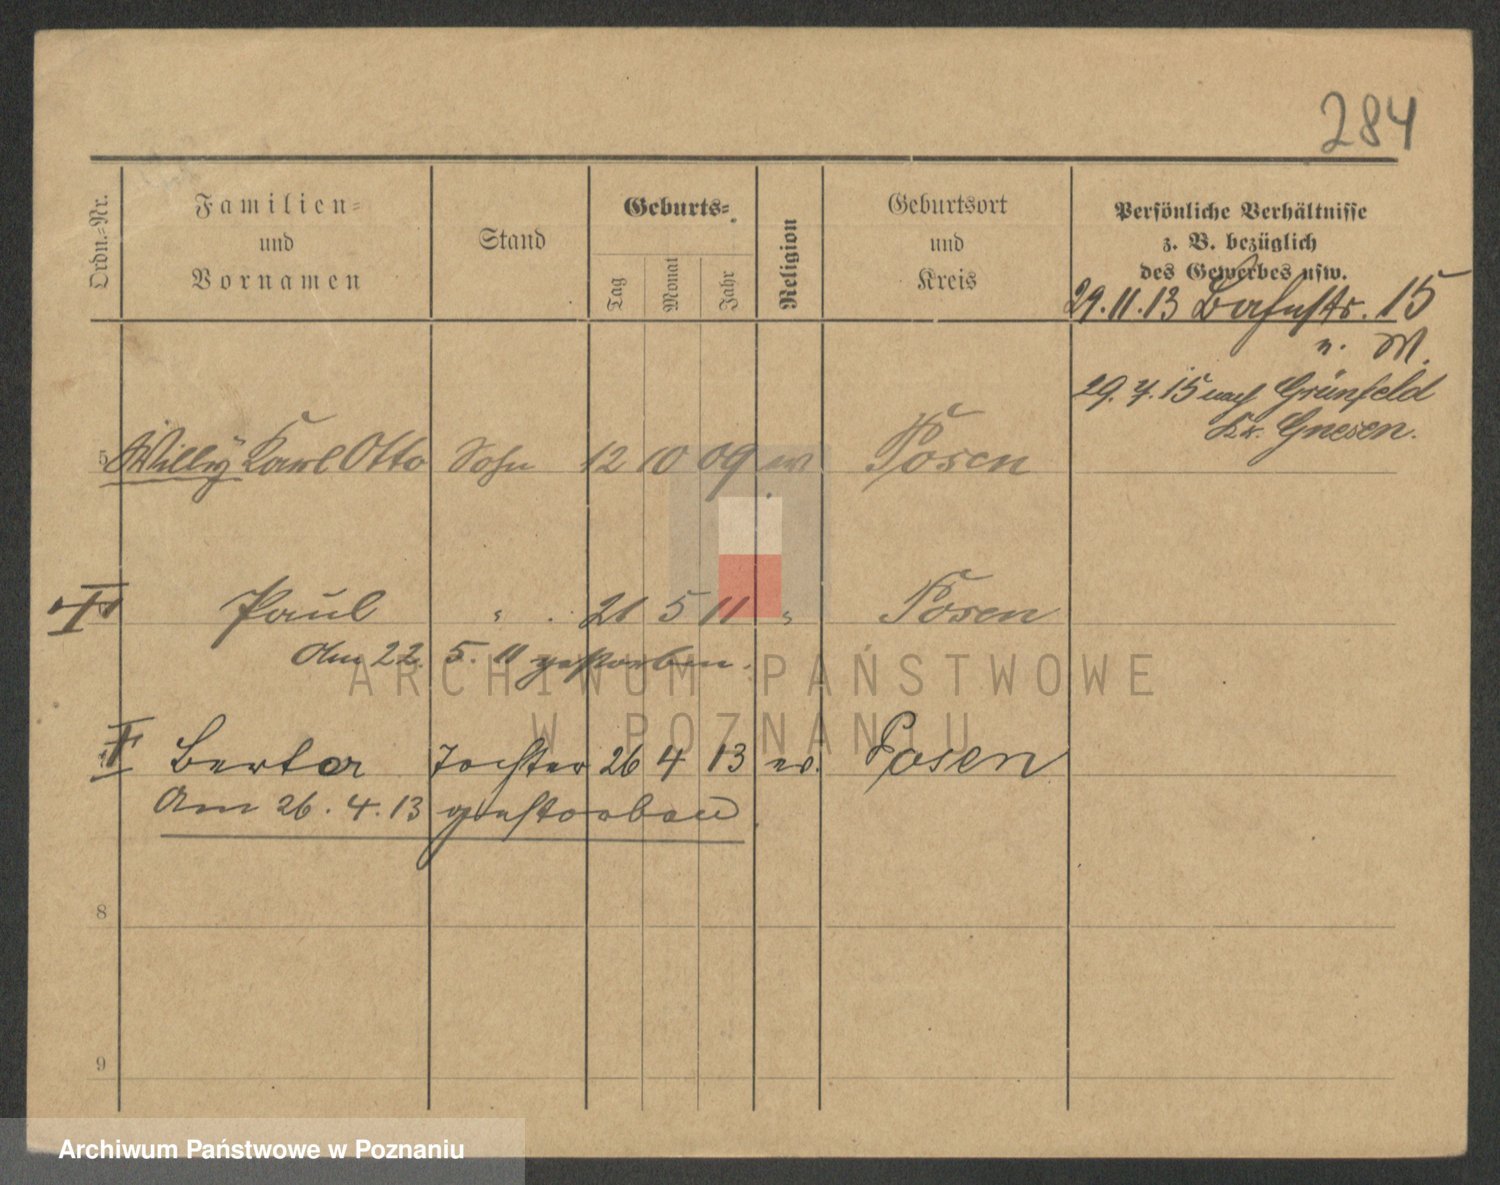 284
Ordn.=Nr.
Familien=
und
Vornamen
Stand
Geburts=
Tag
Monat
Jahr
Religion
Geburtsort
und
Kreis
Persönliche Verhältnisse
z. B. bezüglich
des Gewerbes usw.
29.11.13 Bahnstr. 15
n. M.
29.4.15 nach Grünfeld
Kr. Gnesen.
5 Willy Karl Otto Sohn 12 10 09 ev Posen
Paul " 21 5 11 " Posen
Am 22. 5. 11 gestorben.
Berta Tochter 26 4 13 ev. Posen
Am 26. 4. 13 gestorben
8
9
ARCHIWUM PAŃSTWOWE
W POZNANIU
Archiwum Państwowe w Poznaniu